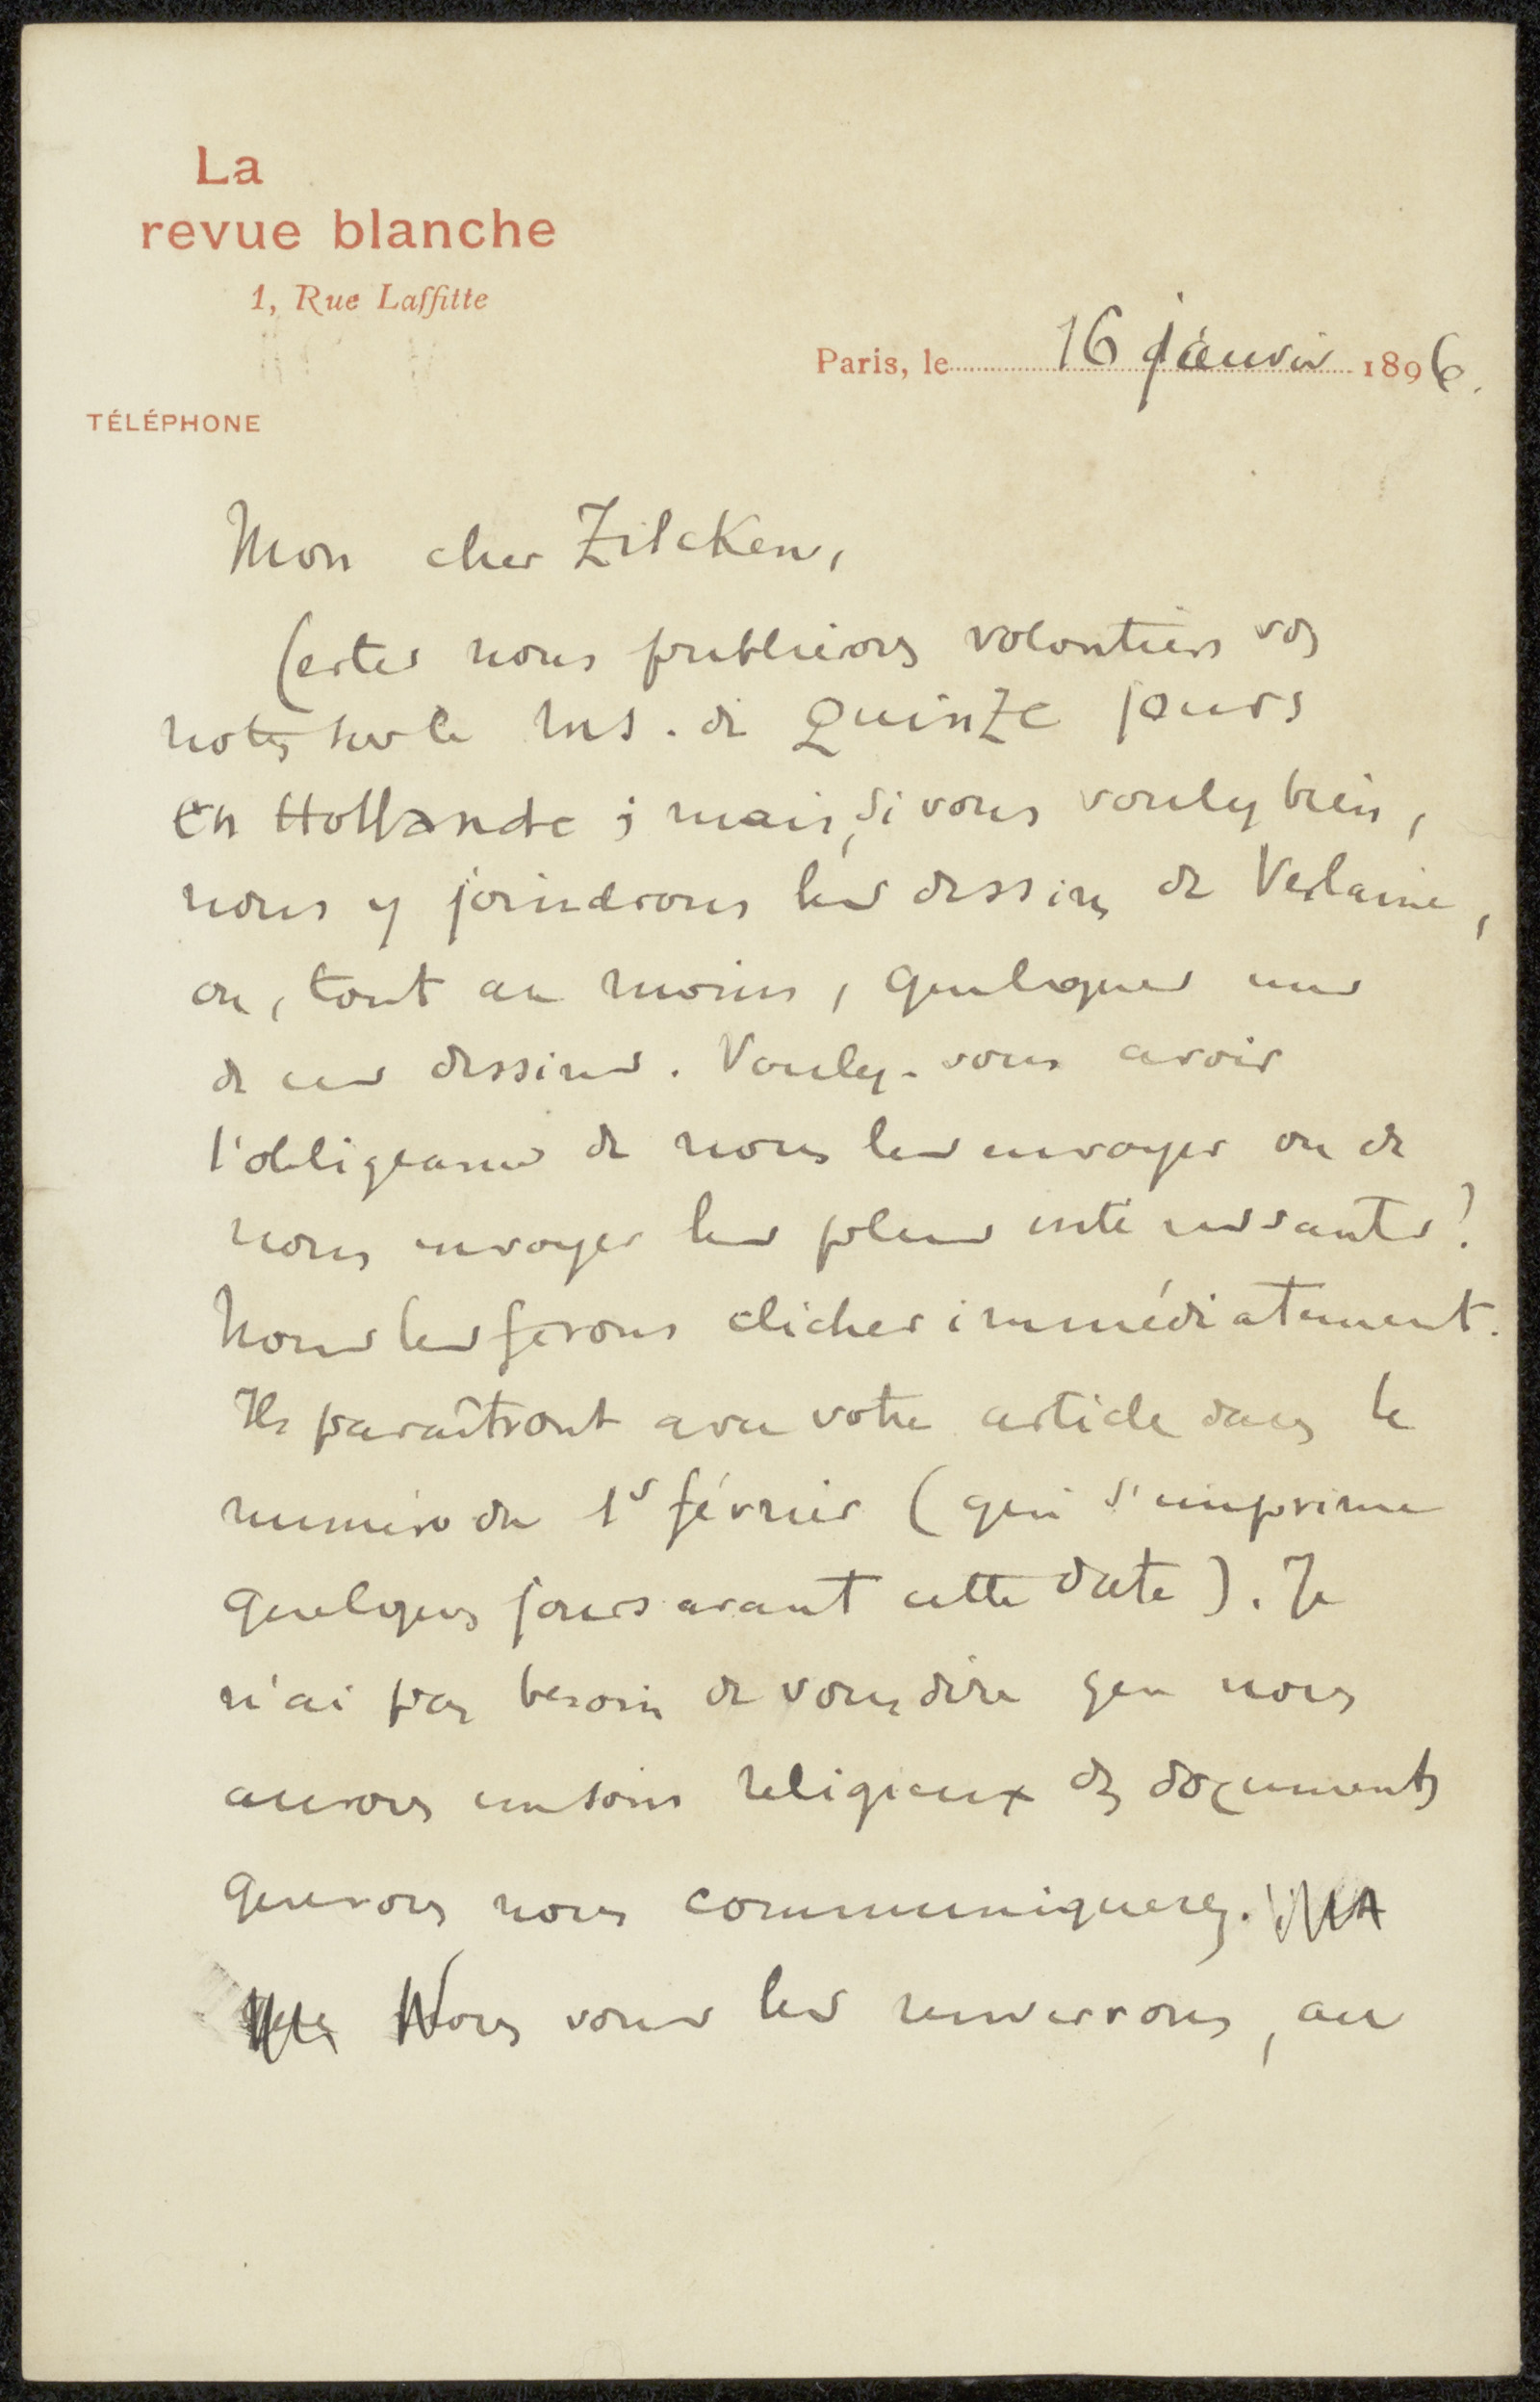 La
revue blanche
1, Rue Laffitte
Paris, le 16 janvier 1896.
TÉLÉPHONE
Mon cher Zilcken,
Certes nous publierons volontiers vos
notes sur le ms. de Quinze jours
en Hollande ; mais, si vous voulez bien,
nous y joindrons les dessins de Verlaine,
ou, tout au moins, quelques uns
de ces dessins. Voulez-vous avoir
l'obligeance de nous les envoyer ou de
nous envoyer les plus intéressants ?
Nous les ferons clicher immédiatement.
Ils paraîtront avec votre article dans le
numéro du 1r février (qui s'imprime
quelques jours avant cette date). Je
n'ai pas besoin de vous dire que nous
aurons un soin religieux des documents
que vous nous communiquerez.
Nous vous les renverrons, au